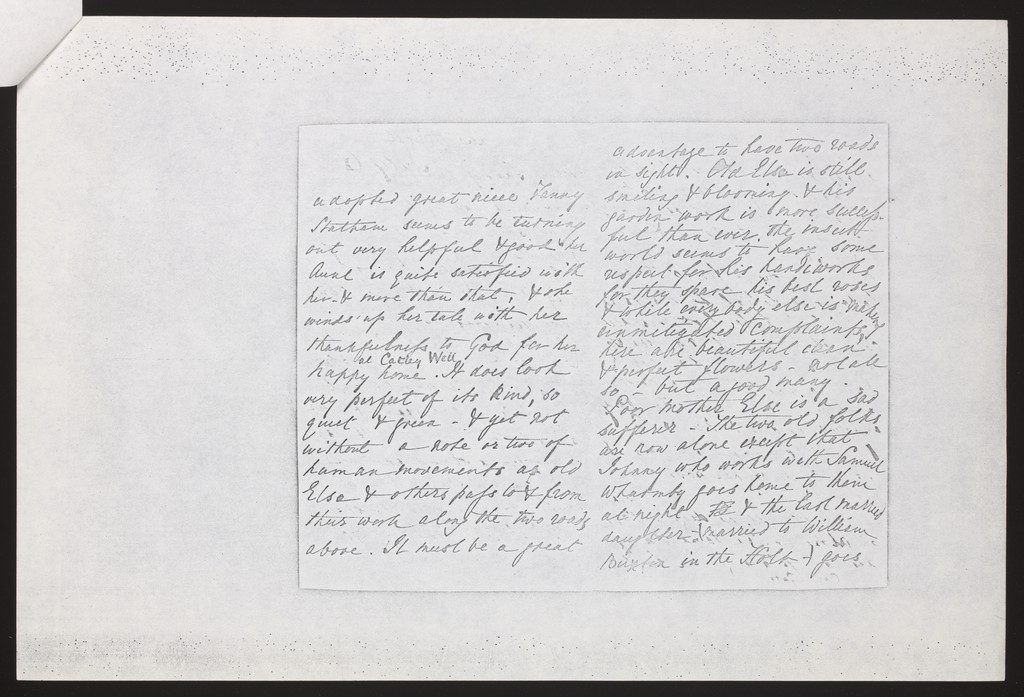 adopted great niece Fanny
Statham seems to be turning
out very helpful & good her
Aunt is quite satisfied with
her & more than that, & she
winds up her tale with her
thankfulness to God for her
at Catley Well
happy home. It does look
very perfect of its kind, so
quiet & green - & yet not
without a note or two of
human movements as old
Else & others pass to & from
their work along the two roads
above. It must be a great
advantage to have two roads
in sight. Old Else is still
smiling & blooming & his
garden work is more success-
ful than ever, the insect
world seems to have some
respect for his handiworks
for they spare his best roses
& while every body else is making
unmitigated complaints,
here are beautiful clean
& perfect flowers - not all
so - but a good many.
Poor mother Else is a sad
sufferer - The two old folks
are now alone except that
Johnny who works with Samuel
Whatmby goes home to them
at night & the last married
daughter - (married to William
Buxton in the Holt -) goes